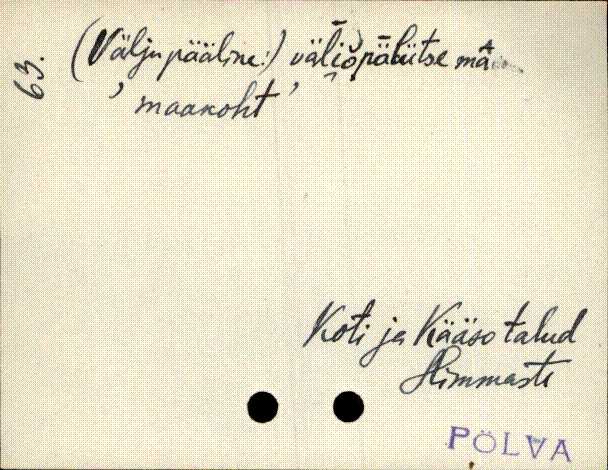 63.
(Välju pääline:) väĺio pälitse mā
' maakoht '
Koti ja Kääso talud
Himmaste
PÕLVA